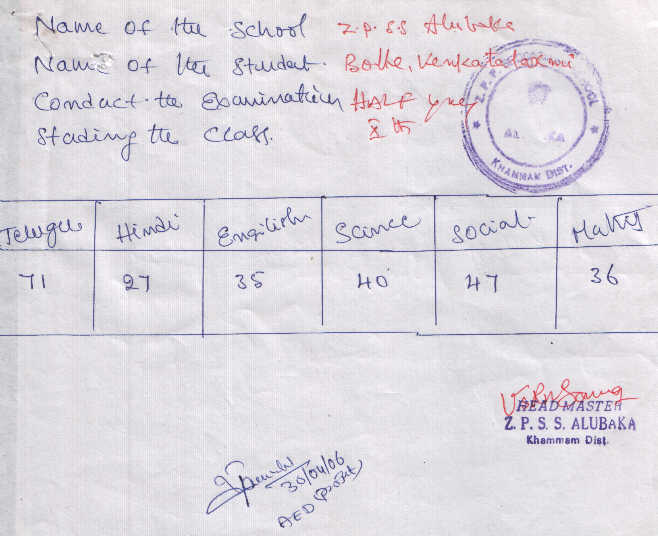 Name of the School Z.P.S.S Alubaka
Name of the Student. Bolle, Venkatalaxmi
Conduct the Examination HALF yrey
Stading the Class. X th
Z.P.P.
ALUBAKA
KHAMMAM DIST.
Telugu Hindi Engilish Scince Social Maths
71 27 35 40 47 36
HEAD MASTER
Z. P. S. S. ALUBAKA
Khammam Dist.
30/04/06
AED